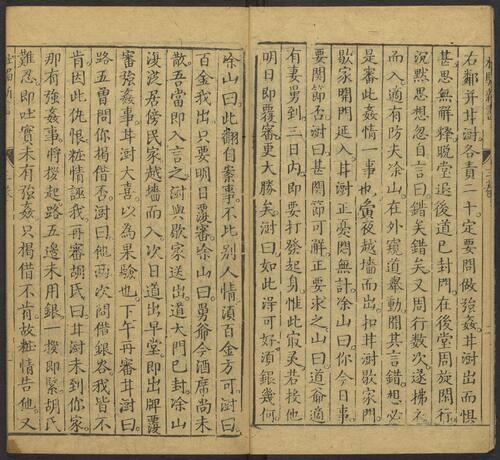 右鄰并井澍各責二十定要問做強姦井澍出而惧
甚思無解釋脫堂退後道已封門在後堂周旋閑行
沉默思想忽自言曰錯矣錯矣又周行數次遂拂衣
而入適有防夫凃山在外窺道舉動聞其言錯想必
是審此姦情一事也夤夜越墻而出扣井澍歇家門
歇家開門延入井澍正憂悶無計凃山曰你今日事
要関節否澍曰甚関節可觧正要求之山曰道爺適
有妻舅到三日内即要打發起身惟此最灵若投他
明日即覆審更大勝矣澍曰如此淂可好湏銀幾何
凃山曰此翻自案事不比别人情湏百金方可澍曰
百金我出只要明日覆審凃山曰舅爺今酒席尚未
散吾當即入言之澍與歇家送出道大門已封凃山
復從居傍民家越墻而入次日道出早堂即出牌覆
審強姦事井澍大喜以為果驗也下午再審井澍曰
路五曽問你揭借否澍曰他两次問借銀谷我皆不
肯因此仇恨粧情誣我再審胡氏曰井澍未到你家
那有強姦事將拶起路五邊未用銀一拶即緊胡氏
難忍即吐實未有強姦只揭借不肯故粧情告他又